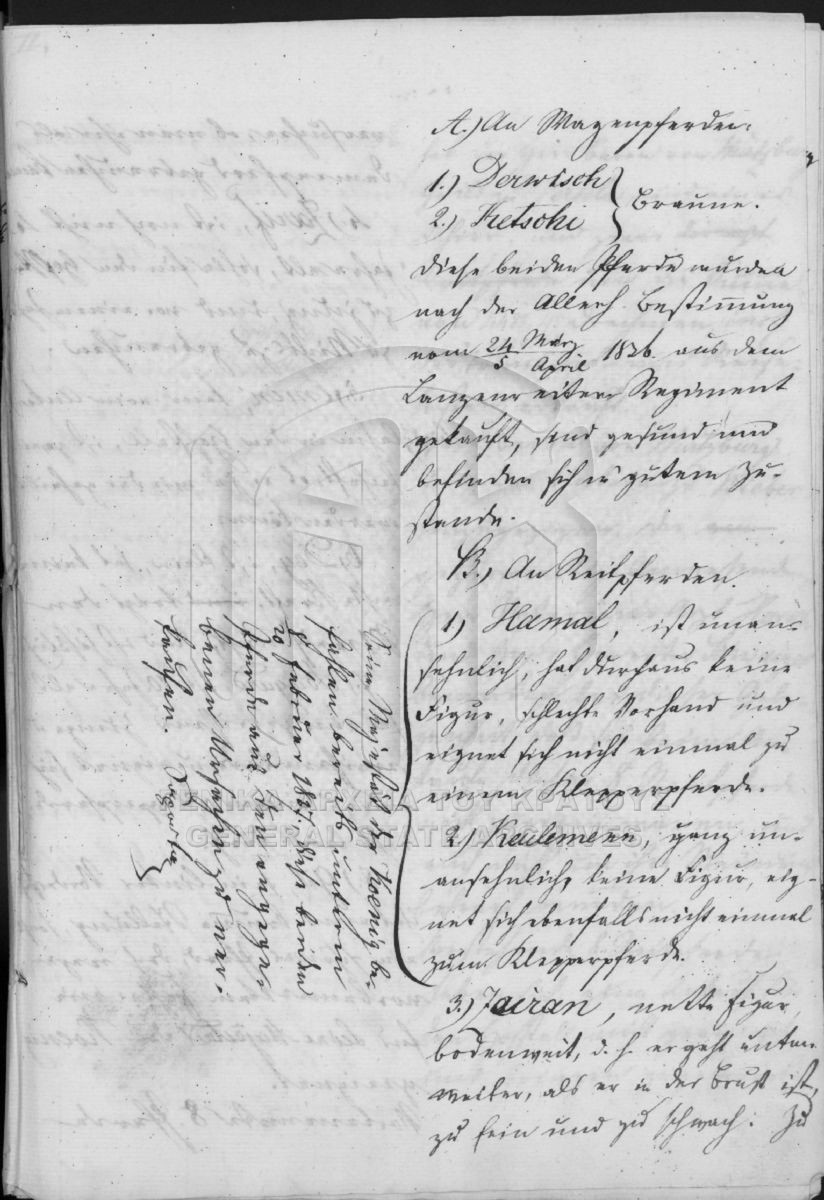 A.) An Wagenpferden:
1.) Derwisch
2.) Ketschi } Braune.
Diese beiden Pferde wurden
nach der Allerh. Bestimmung
vom 24 März / 5 April 1836 aus dem
Lanzenreiter Regiment
gekauft, sind gesund und
befinden sich in gutem Zu-
stande.
B.) An Reitpferden.
1) Hamal, ist unan-
sehnlich, hat durchaus keine
Figur, schlechte Vorhand und
eignet sich nicht einmal zu
einem Klepperpferde.
2.) Keulemenn, ganz un-
ansehnlich, keine Figur, eig-
net sich ebenfalls nicht einmal
zum Klepperpferde.
3.) Jairan, nette Figur,
bodenweit, d. h. er geht unten
weiter, als er in der Brust ist,
zu fein und zu schwach. Zu
Seine Majestät der Koenig be-
fahlen bereits unterm
8/20 Februar 1837 diese beiden
Pferde aus den angege-
benen Ursachen zu ver-
kaufen.
ΓΕΝΙΚΑ ΑΡΧΕΙΑ ΤΟΥ ΚΡΑΤΟΥΣ
GENERAL STATE ARCHIVES